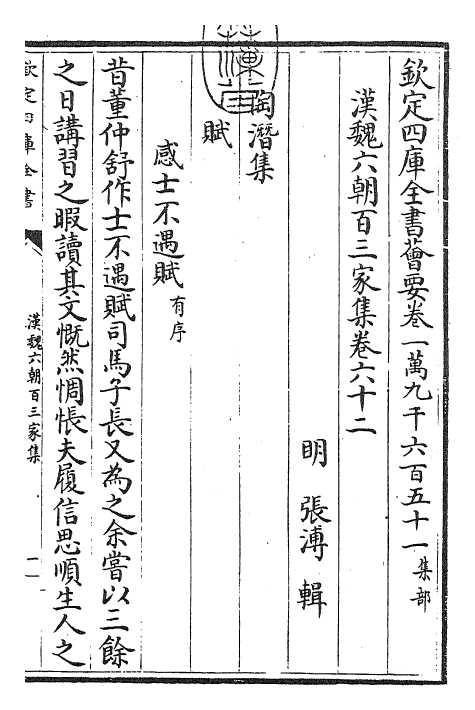 欽定四庫全書薈要卷一萬九千六百五十一集部
漢魏六朝百三家集卷六十二
明張溥輯
陶潛集
賦
感士不遇賦有序
昔董仲舒作士不遇賦司馬子長又為之余嘗以三餘
之日講習之暇讀其文慨然惆悵夫履信思順生人之
欽定四庫全書
漢魏六朝百三家集
一